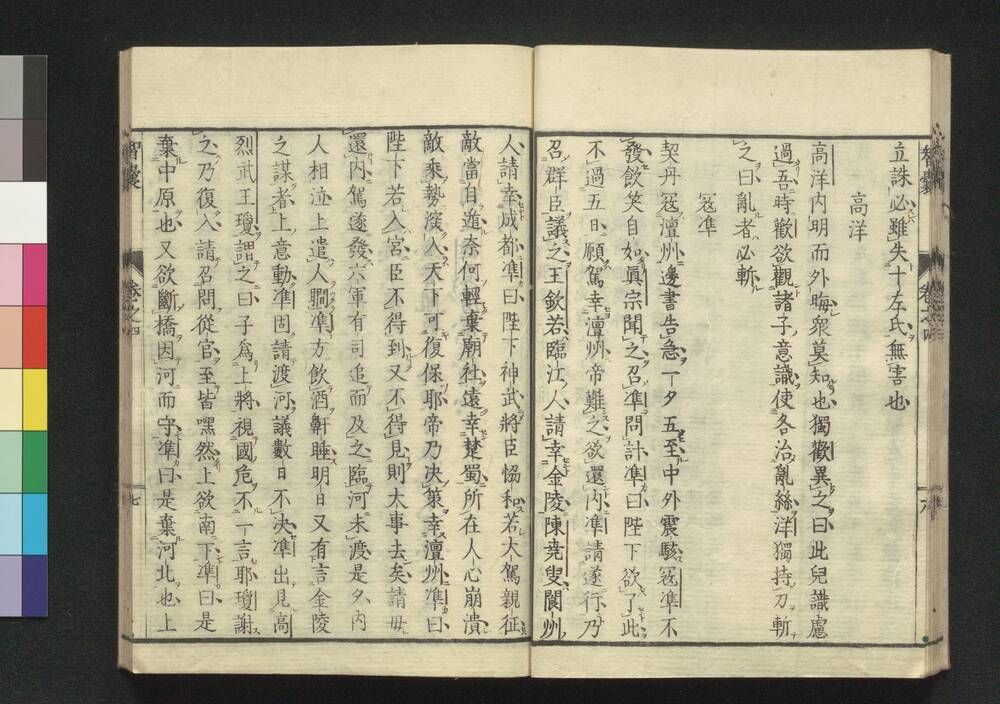 立誅必雖失十左氏無害也
高洋
高洋内明而外晦衆莫知也獨歡異之曰此兒識慮
過吾時歡欲觀諸子意識使各治亂絲洋獨持刀斬
之曰亂者必斬
冦凖
契丹冦澶州邊書告急一夕五至中外震駭冦凖不
發飲笑自如眞宗聞之召凖問計凖曰陛下欲了此
不過五日願駕幸澶州帝難之欲還内凖請遂行乃
召群臣議之王欽若臨江人請幸金陵陳堯叟閬州
人請幸成都凖曰陛下神武將臣恊和若大駕親征
敵當自遁奈何輕棄廟社遠幸楚蜀所在人心崩潰
敵乘勢深入天下可復保耶帝乃决策幸澶州凖曰
陛下若入宮臣不得到又不得見則大事去矣請毋
還内駕遂發六軍有司追而及之臨河未渡是夕内
人相泣上遣人瞯凖方飲酒鼾睡明日又有言金陵
之謀者上意動凖固請渡河議數日不决凖出見高
烈武王瓊謂之曰子爲上將視國危不一言耶瓊謝
之乃復入請召問從官至皆嘿然上欲南下凖曰是
棄中原也又欲斷橋因河而守凖曰是棄河北也上
智嚢
卷之四
七
智嚢
卷之四